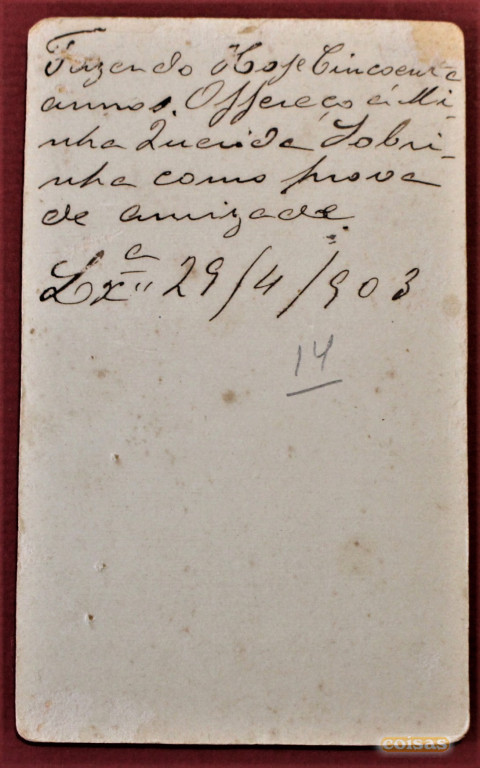 Fazendo Hoje Cincoenta
annos. Offereço á Mi-
nha Querida Sobri-
nha como prova
de amizade
Lxª 29/4/903
14
coisas